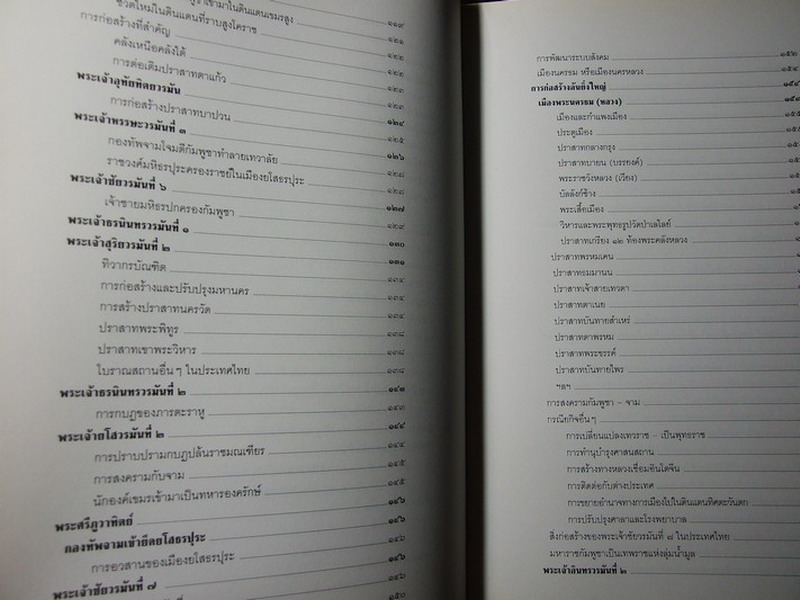 ชีวิตใหม่ในดินแดนที่ราบสูงโคราช ๑๑๙
การก่อสร้างที่สำคัญ ๑๒๑
คลังเหนือคลังใต้ ๑๒๒
การต่อเติมปราสาทตาแก้ว ๑๒๒
พระเจ้าอุทัยทิตยวรมัน ๑๒๓
การก่อสร้างปราสาทบาปวน ๑๒๓
พระเจ้าหรรษะวรมันที่ ๓ ๑๒๔
กองทัพจามโจมตีกัมพูชาทำลายเทวาลัย ๑๒๕
ราชวงศ์มหิธรปุระครองราชย์ในเมืองยโสธรปุระ ๑๒๖
พระเจ้าชัยวรมันที่ ๖ ๑๒๘
เจ้าชายมหิธรปกครองกัมพูชา ๑๒๘
พระเจ้าธรนินทรวรมันที่ ๑ ๑๒๗
พระเจ้าสุริยวรมันที่ ๒ ๑๒๙
๑๓๐
ทิวากรบัณฑิต ๑๓๑
การก่อสร้างและปรับปรุงมหานคร ๑๓๔
การสร้างปราสาทนครวัด ๑๓๔
ปราสาทพระพิทูร ๑๓๘
ปราสาทเขาพระวิหาร ๑๓๘
โบราณสถานอื่นๆ ในประเทศไทย ๑๓๘
พระเจ้าธรนินทรวรมันที่ ๒ ๑๔๑
การกบฏของภารตะราหู ๑๔๓
พระเจ้ายโสวรมันที่ ๒ ๑๔๔
การปราบปรามกบฏปล้นราชมณเฑียร ๑๔๔
การสงครามกับจาม ๑๔๕
นักองค์เขมรเข้ามาเป็นทหารองครักษ์ ๑๔๕
พระศรีภูวาทิตย์ ๑๔๖
กองทัพจามเข้ายึดยโสธรปุระ ๑๔๖
การอวสานของเมืองยโสธรปุระ ๑๔๖
พระเจ้าชัยวรมันที่ ๗ ๑๔๖
๑๕๐
การพัฒนาระบบสังคม ๑๕๒
เมืองนครธม หรือเมืองนครหลวง ๑๕๔
การก่อสร้างอันยิ่งใหญ่ ๑๕๔
เมืองพระนครธม (หลวง)
เมืองและกำแพงเมือง
ประตูเมือง
ปราสาทกลางกรุง
ปราสาทบายน (บรรยงค์)
พระราชวังหลวง (เวียง)
บัลลังก์ช้าง
พระเสื้อเมือง
วิหารและพระพุทธรูปวัดป่าเลไลย์
ปราสาทเกรียง ๑๒ ท้องพระคลังหลวง
ปราสาทพรหมเคน
ปราสาทธมมานน
ปราสาทเจ้าสายเทวดา
ปราสาทตาเนย
ปราสาทบันทายสำเหร่
ปราสาทตาพรหม
ปราสาทพระขรรค์
ปราสาทบันทายไพร
ฯลฯ
การสงครามกัมพูชา - จาม
กรณียกิจอื่นๆ
การเปลี่ยนแปลงเทวราช - เป็นพุทธราช
การทำนุบำรุงศาสนสถาน
การสร้างทางหลวงเชื่อมอินโดจีน
การติดต่อกับต่างประเทศ
การขยายอำนาจทางการเมืองไปในดินแดนทิศตะวันตก
การปรับปรุงศาลาและโรงพยาบาล
สิ่งก่อสร้างของพระเจ้าชัยวรมันที่ ๗ ในประเทศไทย
มหาราชกัมพูชาเป็นเทพราชแห่งลุ่มน้ำมูล
พระเจ้าอินทรวรมันที่ ๒